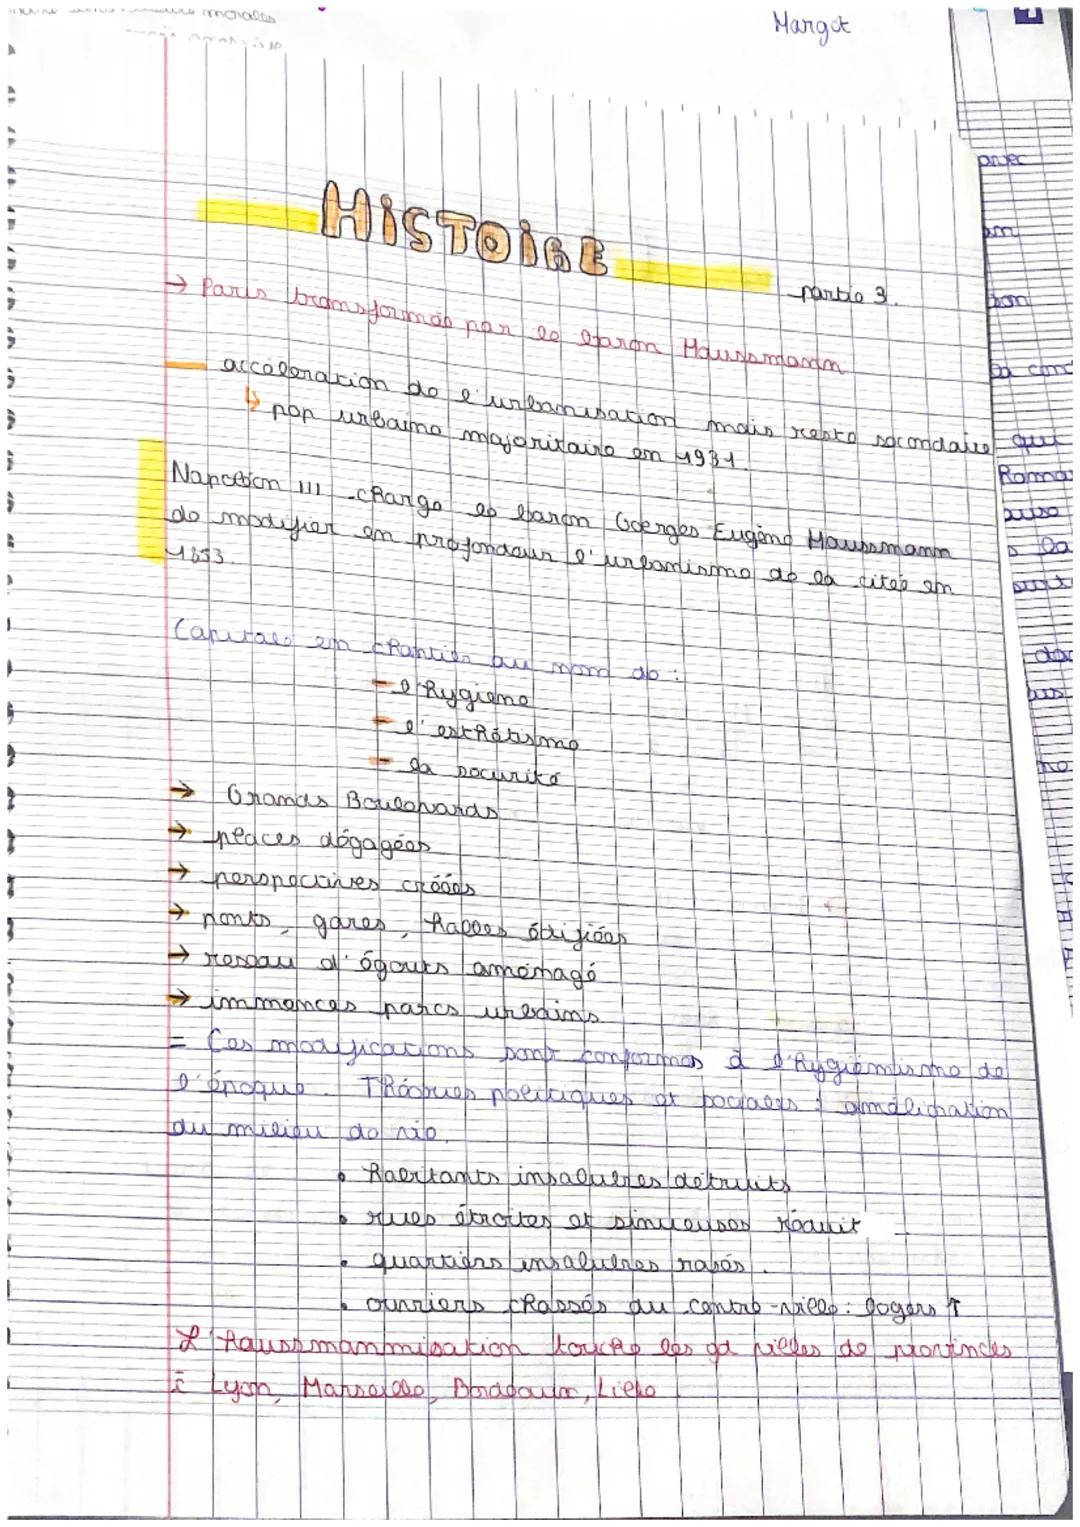 morales
Margot
HiSTOiRE
partie 3.
→ Paris transformée par le baron Haussmann
accéleration de l'urbanisation mais reste secondaire
↳ pop urbaine majoritaire en 1931.
Napoléon III charge le baron Goerges Eugène Haussmann
de modifier en profondeur l'urbanisme de la citée en
1853.
Capitale en chantier au nom de :
- l'hygiène
- l'esthétisme
- la securité
→ Grands Boulevards
→ places dégagées
→ perspectives créées
→ ponts, gares, halles érigiées
→ reseau d'égouts aménagé
→ immences parcs urbains
= Ces modifications sont conformes à l'hygiénisme de
l'époque. Théories politiques et sociales : amélioration
du milieu de vie.
• habitants insalubres détruits
• rues étroites et sinueuses réduit
• quartiers insalubres rasés.
• ouvriers chassés du centre-ville : loyers ↑
L'haussmannisation touche les gd villes de provinces
à Lyon, Marseille, Bordeaux, Lille
avec
qui
la